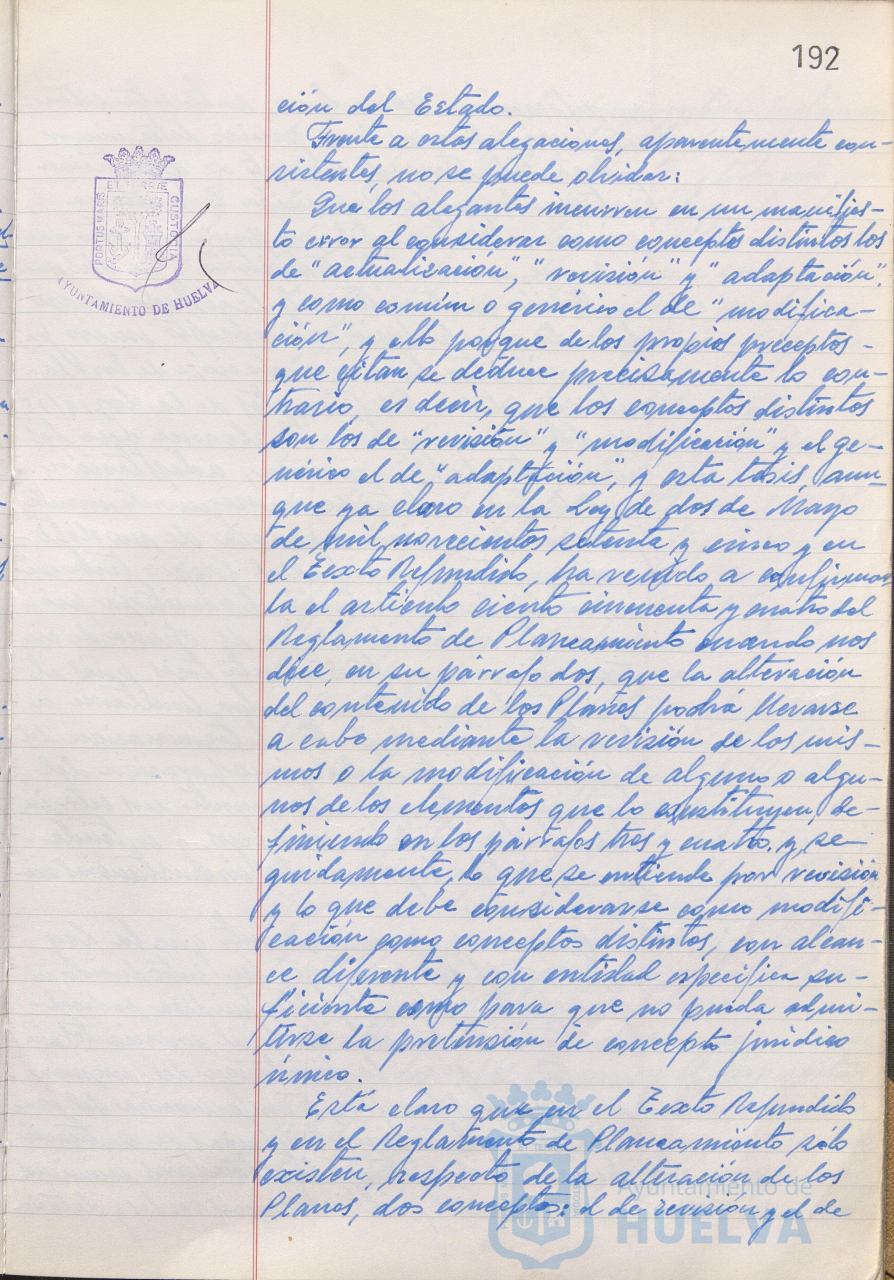 192
ción del Estado.
Frente a estas alegaciones, aparentemente con-
sistentes, no se puede olvidar:
Que los alegantes incurren en un manifies-
to error al considerar como conceptos distintos los
de "actualización", "revisión" y "adaptación",
y como común o genérico el de "modifica-
ción", y ello porque de los propios preceptos -
que citan se deduce precisamente lo con-
trario, es decir, que los conceptos distintos
son los de "revisión" y "modificación" y el ge-
nérico el de "adaptación", y esta tesis, aun-
que ya claro en la Ley de dos de Mayo
de mil novecientos setenta y cinco y en
el Texto Refundido, ha venido a confirmar
la el artículo ciento cincuenta y cuatro del
Reglamento de Planeamiento cuando nos
dice, en su párrafo dos, que la alteración
del contenido de los Planes podrá llevarse
a cabo mediante la revisión de los mis-
mos o la modificación de alguno o algu-
nos de los elementos que lo constituyen, de-
finiendo en los párrafos tres y cuatro, y se-
guidamente, lo que se entiende por revisión
y lo que debe considerarse como modifi-
cación como conceptos distintos, con alcan-
ce diferente y con entidad específica su-
ficiente como para que no pueda admi-
tirse la pretensión de concepto jurídico
único.
Está claro que en el Texto Refundido
y en el Reglamento de Planeamiento sólo
existen, respecto de la alteración de los
Planes, dos conceptos: el de revisión y el de
PORTUS MARIS
ET TERRAE
CUSTODIA
AYUNTAMIENTO DE HUELVA
Ayuntamiento de
HUELVA